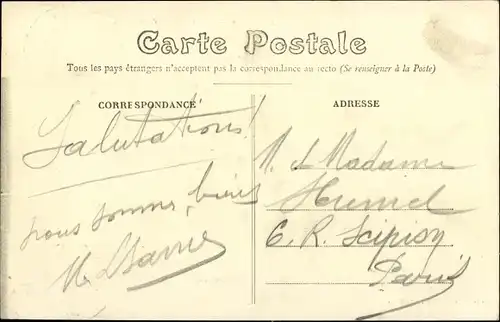 Carte Postale
Tous les pays étrangers n'acceptent pas la correspondance au recto (Se renseigner à la Poste)
CORRESPONDANCE
ADRESSE
Salutations!
nous sommes bien
M. et Madame
6. R. Scipion
Paris